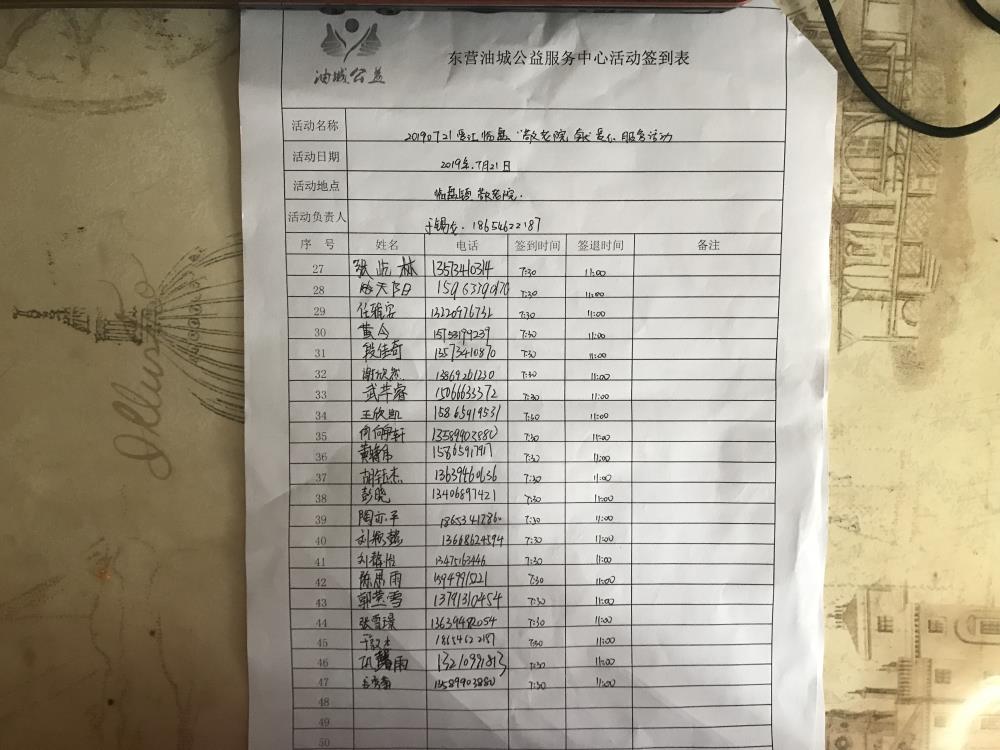 油城公益
东营油城公益服务中心活动签到表
活动名称 20190721 临盘 敬老院 服务活动
活动日期 2019年.7月21日
活动地点 临盘镇 敬老院.
活动负责人 于锡龙. 18654622187
序 号 姓名 电话 签到时间 签退时间 备注
27 张屹林 13573410314 7:30 11:00
28 7:30 11:00
29 13220976732 7:30 11:00
30 黄今 15753194239 7:30 11:00
31 段佳奇 13573410870 7:30 11:00
32 13869261230 7:30 11:00
33 武芊睿 15066633372 7:30 11:00
34 王欣凯 15865919531 7:30 11:00
35 13589903880 7:30 11:00
36 7:30 11:00
37 胡钰杰 13639460636 7:30 11:00
38 彭晓 13406897421 7:30 11:00
39 陶亦平 7:30 11:00
40 13668624594 7:30 11:00
41 刘馨怡 13475163446 7:30 11:00
42 7:30 11:00
43 郭芸雪 13791310454 7:30 11:00
44 张雪璟 13639482054 7:30 11:00
45 18654622187 7:30 11:00
46 7:30 11:00
47 13589903880 7:30 11:00
48
49
50